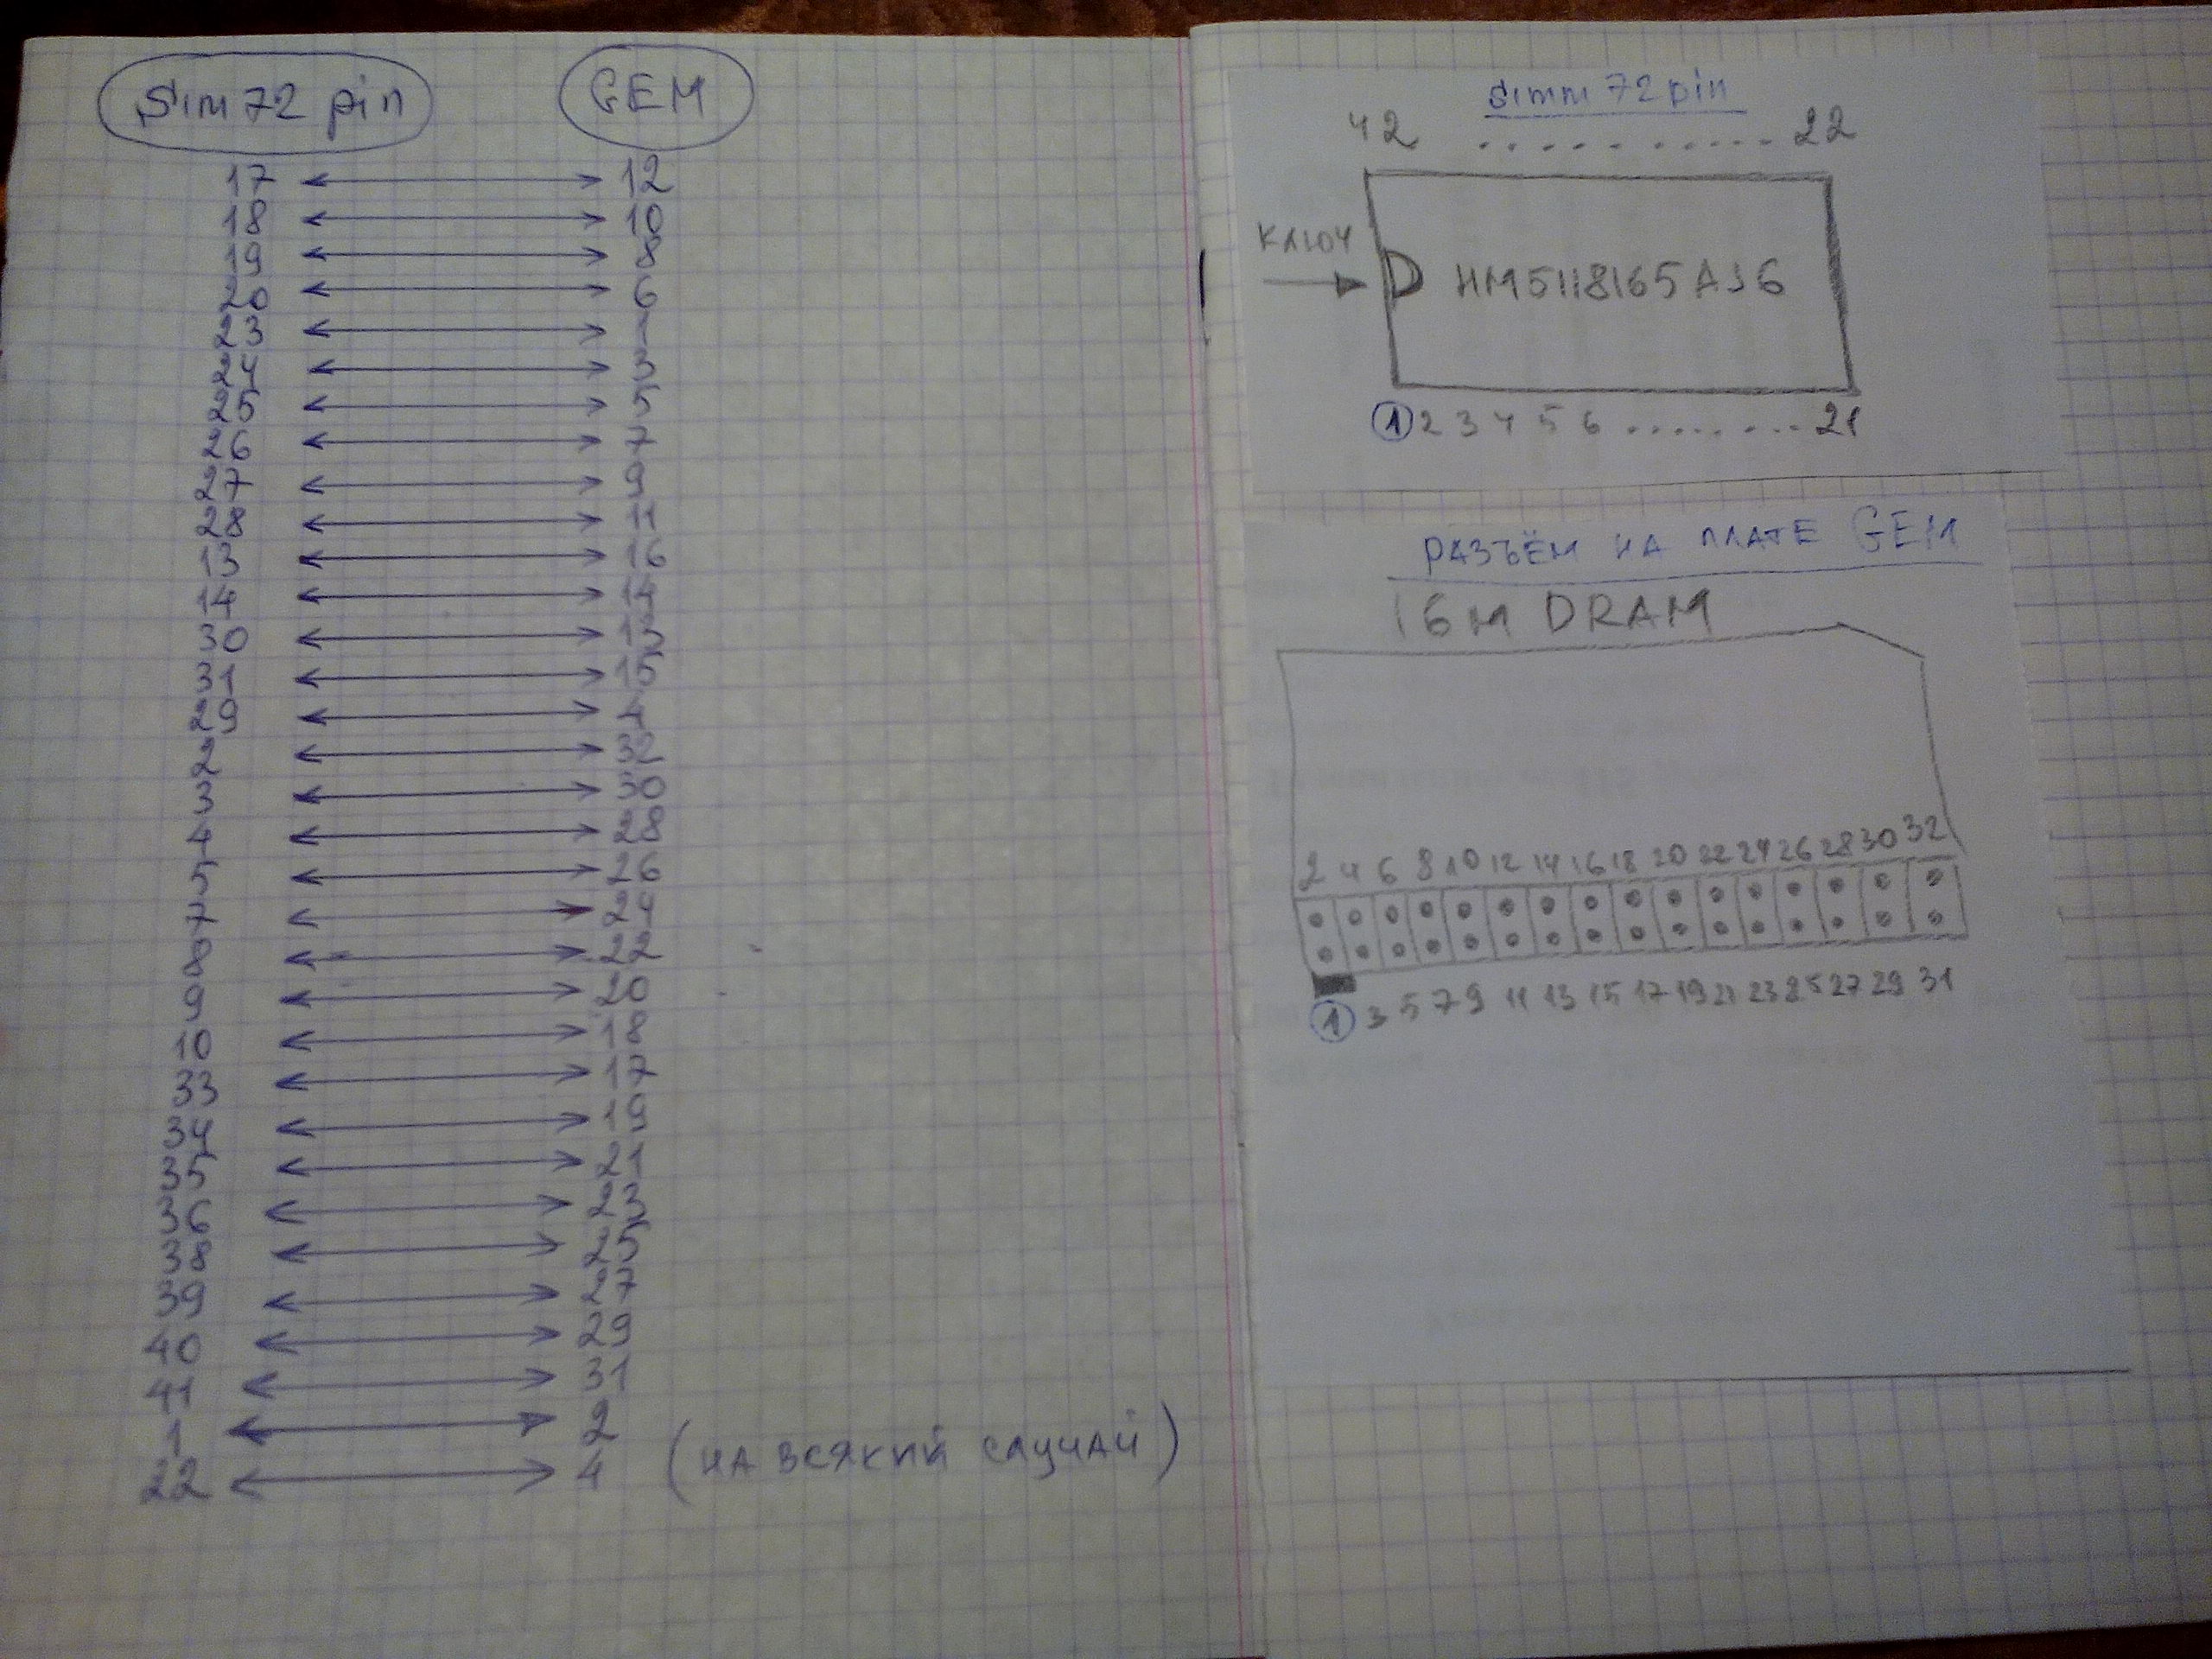 Sim 72 pin GEM
17 ↔ 12
18 ↔ 10
19 ↔ 8
20 ↔ 6
23 ↔ 1
24 ↔ 3
25 ↔ 5
26 ↔ 7
27 ↔ 9
28 ↔ 11
13 ↔ 16
14 ↔ 14
30 ↔ 13
31 ↔ 15
29 ↔
2 ↔ 32
3 ↔ 30
4 ↔ 28
5 ↔ 26
7 ↔ 24
8 ↔ 22
9 ↔ 20
10 ↔ 18
33 ↔ 17
34 ↔ 19
35 ↔ 21
36 ↔ 23
38 ↔ 25
39 ↔ 27
40 ↔ 29
41 ↔ 31
1 ↔ 2
22 ↔ 4 (на всякий случай)
simm 72 pin
42 ........... 22
ключ
HM5118165AJ6
1 2 3 4 5 6 ........ 21
РАЗЪЁМ НА ПЛАТЕ GEM
16M DRAM
2 4 6 8 10 12 14 16 18 20 22 24 26 28 30 32
1 3 5 7 9 11 13 15 17 19 21 23 25 27 29 31